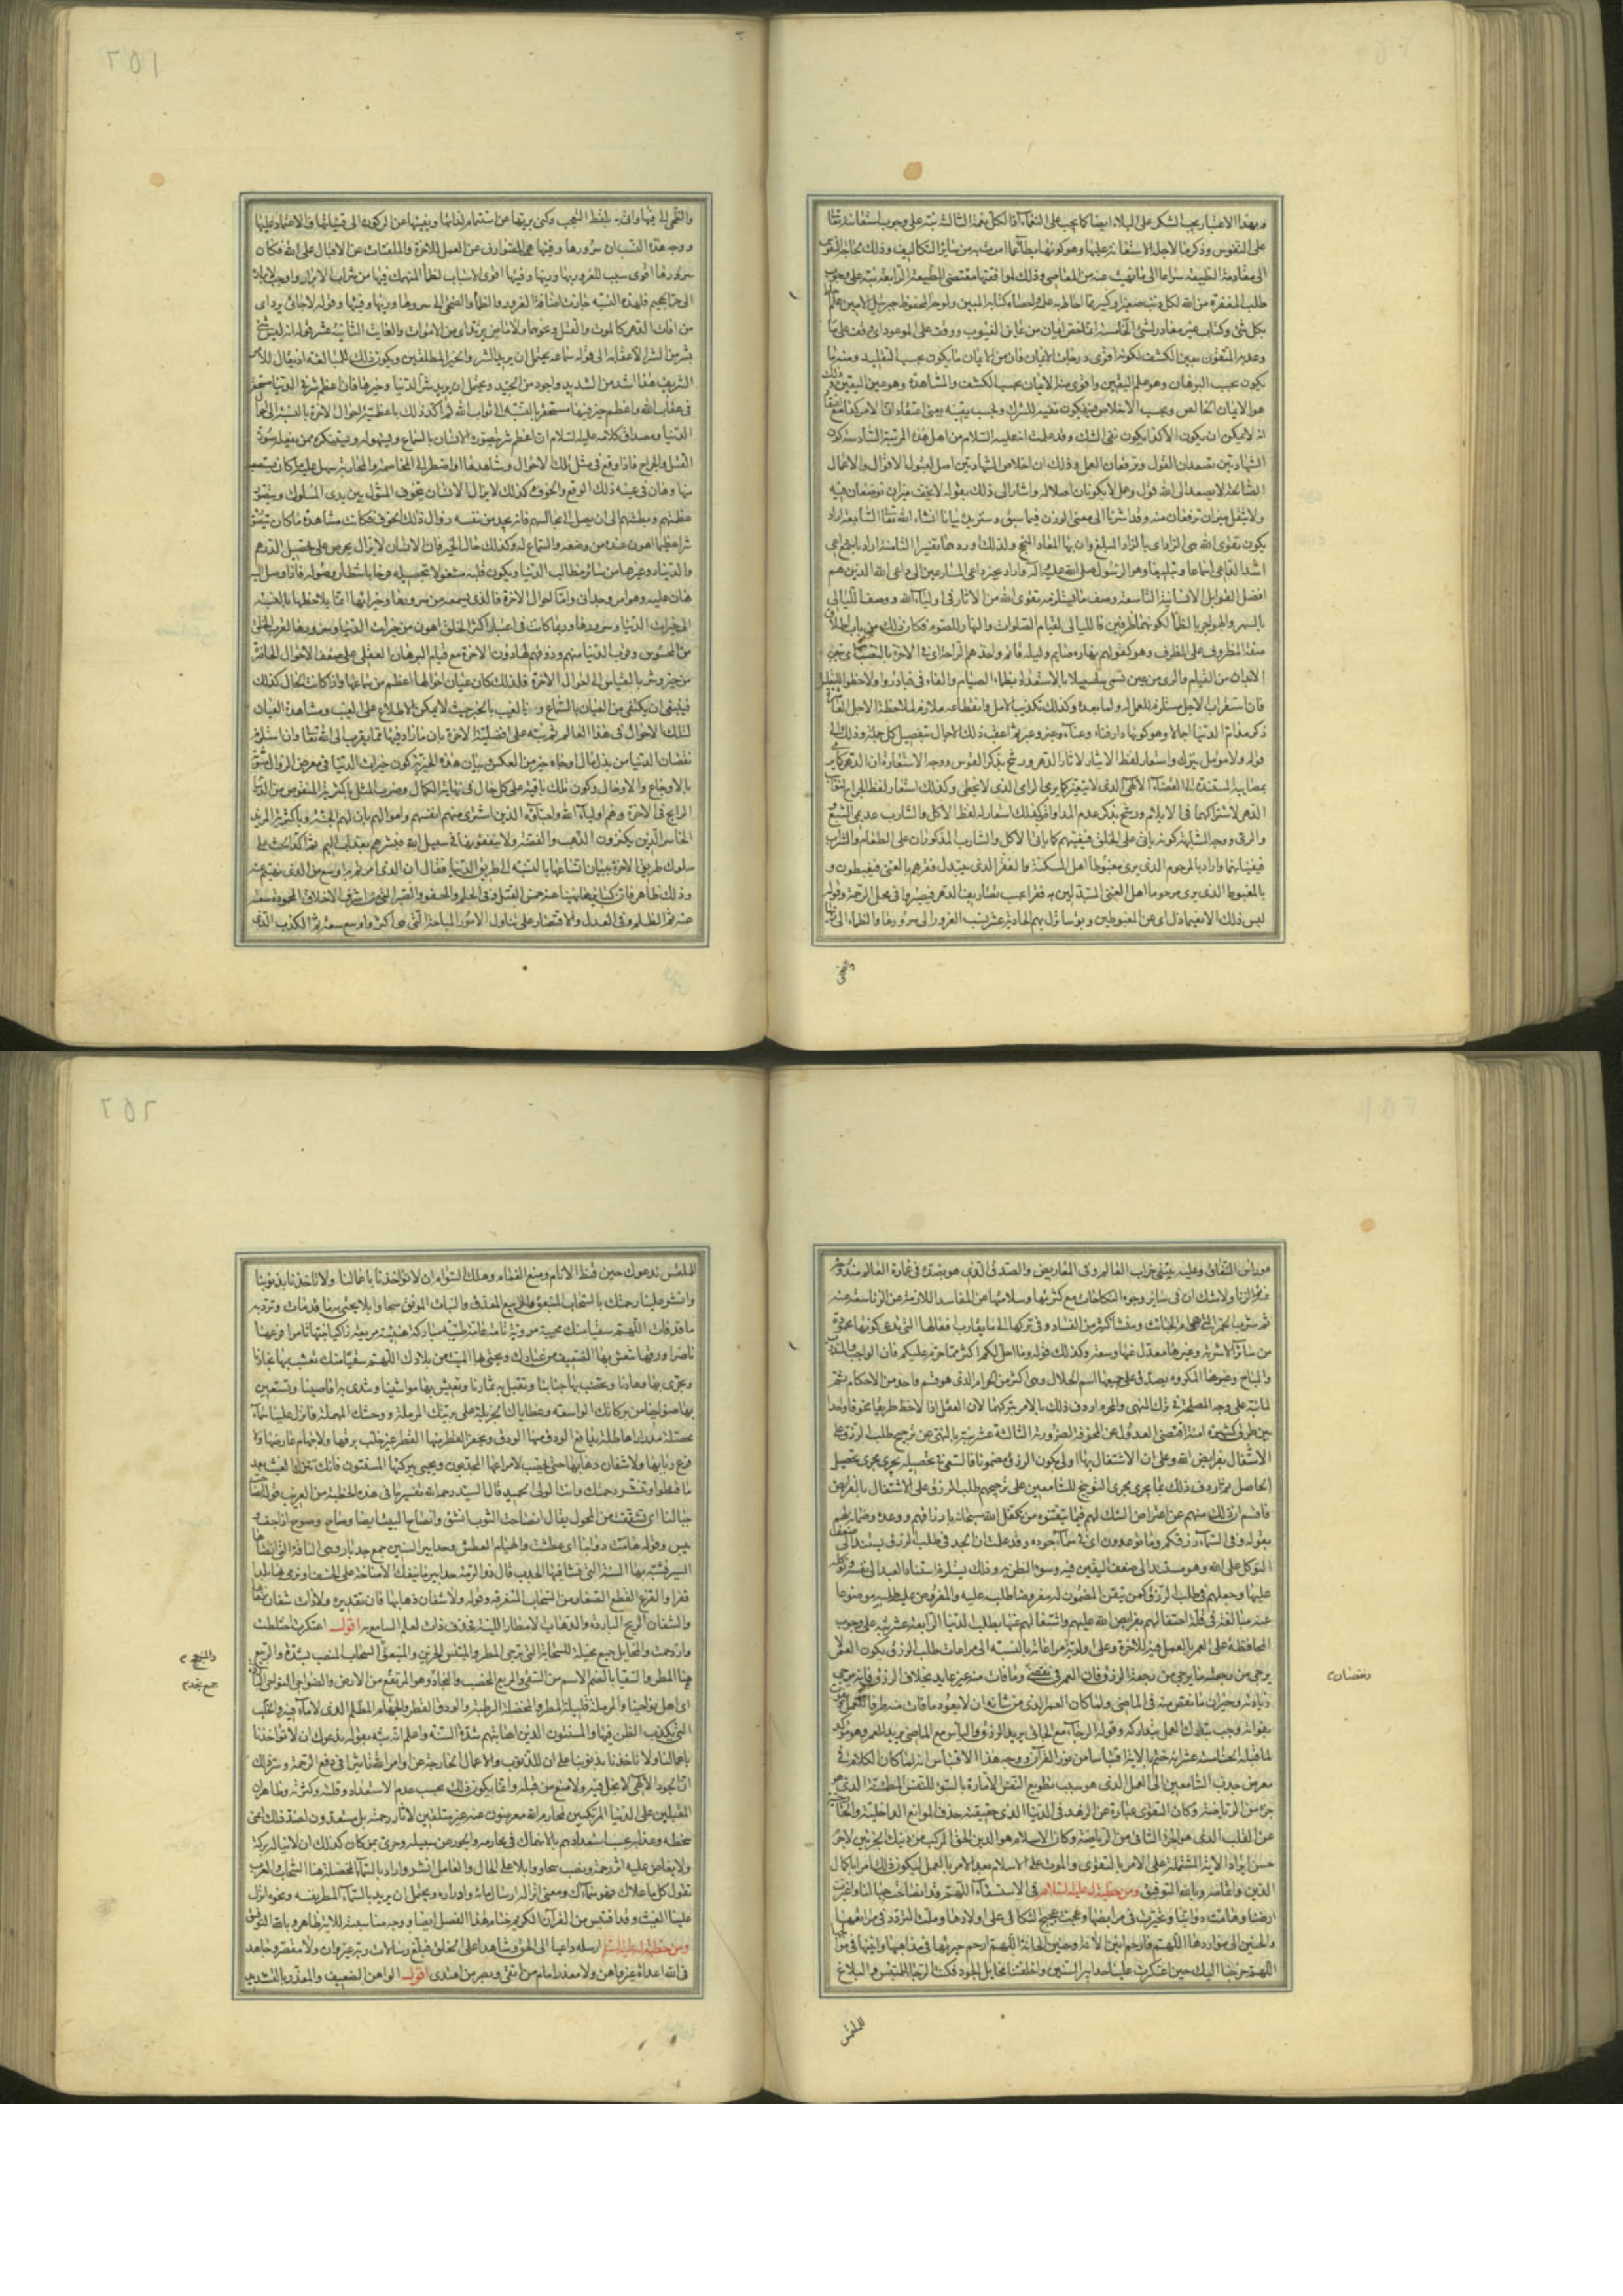 وبهذا الاعتبار يجب الشكر على البلاء ايضا كما يجب على النعماء اذ الكل نعمة الثالثة نبه على وجوب استعانته تعالى
على النفوس وذكر ما لاجله الاستعانة عليها وهو كونها بطاء عما امرت به من سائر التكاليف وذلك
الى مقاومة الطبيعة سراعا الى ما نهيت عنه من المعاصي وذلك لموافقتها مقتضى الطبيعة الرابعة نبه على وجوب
طلب المغفرة من الله لكل ذنب صغير وكبير مما احاط به علمه واحصاه كتابه المبين ولوحه المحفوظ
بكل شيء وكتاب غير مغادر لشيء الخامسة ايمان من عاين الغيوب ووقف على الموعود اي وقف على ما
وعد به المتقون بعين الكشف لكونه اقوى درجات الايمان فان من الايمان ما يكون بحسب التقليد ومنه ما
يكون بحسب البرهان وهو علم اليقين واقوى منه الايمان بحسب الكشف والمشاهدة وهو عين اليقين وذلك
هو الايمان الخالص وبحسب الاخلاص فيه يكون نفيه للشرك وبحسب يقينه يعني اعتقاد ان الامر كذا مع
انه لا يمكن ان يكون الا كذا يكون نفي الشك وقد علمت انه عليه السلام من اهل هذه المرتبة السادسة كون
الشهادتين تصعدان القول وترفعان العمل وذلك ان اخلاص الشهادتين اصل لقبول الاقوال والاعمال
الصالحة لا يصعد الى الله قول وعمل لا يكونان اصلا له واشار الى ذلك بقوله لا يخف ميزان توضعان فيه
ولا يثقل ميزان ترفعان منه وقد اشرنا الى معنى الوزن فيما سبق وسنزيده بيانا ان شاء الله تعالى السابعة اراد
بكون تقوى الله هي الزاد اي الزاد المبلغ وان بها المعاد المنجح ولذلك اورده تفسيرا الثامنة اراد باسمع داعي
اشد الداعي اسماعا وتبليغا وهو الرسول صلى الله عليه وآله واراد بخير داعي المسارعين الى داعي الله الذين هم
افضل القوابل الانسانية التاسعة وصف ما يستلزمه تقوى الله من الاثار في اولياء الله ووصف الليالي
بالسهر والهواجر بالظمأ لكونهما ظرفين فالليالي لقيام الصلوات والنهار للصوم فكان ذلك من باب اطلاق
صفة المظروف على الظرف وهو كقولهم نهاره صائم وليله قائم
فان استقراب الاجل مستلزم للعمل له ولما بعده وكذلك تكذيب الامل وانقطاعه ملازم لملاحظة الاجل العاشرة
ذكر معايب الدنيا اجمالا وهو كونها دار فناء وعناء وغير وعبر ثم اعقب ذلك الاجمال بتفصيل كل جملة وذلك الى
قوله ولا مؤمل يترك واستعار لفظ الايتار لاثار الدهر ورشح بذكر القوس ووجه الاستعارة ان الدهر كما يرمي
بمصايبه المستندة الى القضاء الالهي الذي لا يتغير كما يرمي الرامي الذي لا يخطئ وكذلك استعار لفظ الجراح لنوائب
الدهر لاشتراكهما في الايلام ورشح بذكر عدم المداواة وكذلك استعار له لفظ الاكل والشارب عديمي الشبع
والري ووجه الشبه كونه يأتي على الخلق فيفنيهم كما يأتي الاكل والشارب المذكوران على الطعام والشراب
فيفنيانهما واراد بالمرحوم الذي يرى مغبوطا اهل المسكنة والفقر الذي يتبدل فقرهم بالغنى فيغبطون و
بالمغبوط الذي يرى مرحوما اهل الغنى المستبدلين به فقرا بحسب تصاريف الدهر فيصيروا في محل الرحمة وقوله
ليس ذلك الا نعيما زل اي عن المغبوطين وبؤسا نزل بهم الحادية عشر نسب الغرور الى سرورها والظماء الى ريها
والضحى
والضحى الى فيئها واتى بلفظ التعجب وكنى بريها عن استتمام لذاتها وبفيئها عن الركون الى قيناتها والاعتماد عليها
ووجه هذه النسب ان سرورها وريها وفيئها هي الصوارف عن العمل للاخرة والملفتات عن الاقبال على الله فكان
سرورها اقوى سبب للغرور بها وريها وفيئها اقوى الاسباب لظمأ المنهمك فيها من شراب الابرار
الى الجحيم فلهذه النسبة جازت اضافة الغرور والظمأ والضحى الى سرورها وريها وفيئها وقوله لا جاء يرد اي
من آفات الدهر كالموت والقتل ونحوهما ولا ماض يرتد اي من الاموات والغائب الثانية عشر قوله انه ليس شيء
بشر من الشر الا عقابه الى قوله سماعه يحتمل ان يريد الشر والخير المطلقين ويكون ذلك للمبالغة اذ يقال للامر
الشديد هذا اشد من الشديد واجود من الجيد ويحتمل ان يريد شر الدنيا وخيرها فان اعظم شر في الدنيا مستحقر
في عقاب الله واعظم خير فيها مستحقر بالنسبة الى ثواب الله ثم اكد ذلك باعظمية احوال الاخرة بالنسبة الى احوال
الدنيا ومصداق كلامه عليه السلام ان اعظم شر يتصوره الانسان بالسماع ويستهوله ويستنكره ممن يفعله صورة
القتل والجراح فاذا وقع في مثل تلك الاحوال وشاهدها واضطر الى المخاصمة والمحاربة سهل عليه ما كان يستصعبه
منها وهان في عينه ذلك الوقع والخوف وكذلك لا يزال الانسان يتخوف المثول بين يدي الملوك ويتصور
عظمتهم وبطشهم الى ان يصل الى مجالسهم فانه يجد من نفسه زوال ذلك الخوف فكانت مشاهدة ما كان يتصوره
شرا عظيما اهون عنده من وصفه والسماع له وكذلك حال الخير فان الانسان لا يزال يحرص على تحصيل الدرهم
والدينار وغيرهما من سائر مطالب الدنيا ويكون قلبه مشغولا بتحصيله فرحا بانتظار وصوله فاذا وصل اليه
هان عليه وهو امر وجداني واما احوال الاخرة فالذي يسمعه من شرورها وخيراتها انما يلاحظها بالنسبة
الى خيرات الدنيا وشرورها وربما كانت في اعتبار اكثر الخلق اهون من خيرات الدنيا وشرورها لقرب الخلق
من المحسوس وقرب الدنيا منهم وذوقهم لها دون الاخرة مع قيام البرهان العقلي على ضعف الاحوال الحاضرة
من خير وشر بالقياس الى احوال الاخرة فلذلك كان عيان احوالها اعظم من سماعها واذا كانت الحال كذلك
فينبغي ان يكتفى من العيان بالسماع ومن الغيب بالخبر حيث لا يمكن الاطلاع على الغيب ومشاهدة العيان
لتلك الاحوال في هذا العالم ثم نبه على افضلية الاخرة بان ما زاد فيها مما يقرب الى الله تعالى وان استلزم
نقصان الدنيا من بذل مال او جاه خير من العكس وبيان هذه الخيرية كون خيرات الدنيا في معرض الزوال مشوبة
بالاوجاع والاوجال وكون تلك باقية على كل حال في نهاية الكمال وضرب المثل باكثرية المنقوص من الدنيا
الرابح في الاخرة وهم اولياء الله واحباؤه الذين اشترى منهم انفسهم واموالهم بان لهم الجنة وباكثرية المزيد
الخاسر الذين يكنزون الذهب والفضة ولا ينفقونها في سبيل الله فبشرهم بعذاب اليم ثم اكد الحث على
سلوك طريق الاخرة ببيان اتساعها بالنسبة الى طريق الدنيا فقال ان الذي امرتم به اوسع من الذي نهيتم عنه
وذلك ظاهر فان كبائر ما نهينا عنه القتل وفي الحلم والعفو والصبر التي هي اشرف الاخلاق المحمودة سعة
عنه ثم الظلم وفي العدل والاقتصار على تناول الامور المباحة التي هي اكثر واوسع سعة ثم الكذب الذي
هو راس النفاق وعليه يبتنى خراب العالم وفي المعاريض والصدق الذي هو ضده في عمارة العالم مندوحة
ثم الزنا ولا شك ان في سائر وجوه النكاحات مع كثرتها وسلامتها عن المفاسد اللازمة عن الزنا سعة عنه
ثم شرب الخمر التي هي ام الخبائث ومنشأ كثير من الفساد وفي تركها الى ما يقارب فعالها التي يدعى كونها محمودة
من سائر الاشربة وغيرها معدل عنها وسعة وكذلك قوله وما احل لكم اكثر مما حرم عليكم فان الواجب والمندوب
والمباح والمكروه يصدق على جميعها اسم الحلال وهي اكثر من الحرام الذي هو قسم واحد من الاحكام ثم
على وجه المصلحة في ترك المنهي والمحرم اردف ذلك بالامر بتركهما لان العقل اذا لاحظ طريقا مخوفا واحدا
بين طرق كثيرة آمنة اقتضى العدول عن المخوفة لضرورته الثالثة عشر نبه بالنهي عن ترجيح طلب الرزق على
الاشتغال بفرايض الله وعلى ان الاشتغال بها اولى بكون الرزق مضمونا فالسعي في تحصيله يجري مجرى تحصيل
الحاصل ثم اردف ذلك بما يجري مجرى التوبيخ للسامعين على ترجيحهم طلب الرزق على الاشتغال بالفرايض
فاقسم ان ذلك منهم عن اعتراض الشك لهم فيما تيقنوه من تكفل الله سبحانه بارزاقهم ووعده وضمانه لهم
بقوله وفي السماء رزقكم وما توعدون اي في سماء جوده وقد علمت ان الجد في طلب الرزق يستند الى ضعف
التوكل على الله وهو مستند الى ضعف اليقين فيه وسوء الظن به وذلك يستلزم استناد العبد الى نفسه وتوكله
عليها وجعلهم في طلب الرزق كمن تيقن المضمون له مفروضا طلبه عليه والمفروض عليه طلبه موضوعا
عنه مبالغة في قلة احتفالهم بفرايض الله عليهم واشتغالهم عنها بطلب الدنيا الرابعة عشر نبه على وجوب
المحافظة على العمر بالعمل فيه للاخرة وعلى اولوية مراعاته بالنسبة الى مراعات طلب الرزق بكون العمر لا
يرجى من رجعته ما يرجى من رجعة الرزق فان العمر في نقص وما فات منه غير عائد بخلاف الرزق فانه يرجى
زيادته وجبران ما نقص منه في الماضي ولما كان العمر الذي من شأنه ان لا يعود ما فات منه
بفواته وجب تدارك العمل بتداركه وقوله الرجاء مع الجائي يريد الرزق والياس مع الماضي يريد العمر وهو مؤكد
لما قبله الخامسة عشر انه ختم بالاية اقتباسا من نور القرآن ووجه هذا الاقتباس انه لما كان الكلام في
معرض جذب السامعين الى العمل الذي هو سبب تطويع النفس الامارة بالسوء للنفس المطمئنة الذي هو
جزء من الرياضة وكان التقوى عبارة عن الزهد في الدنيا الذي حقيقته حذف الموانع الداخلية والخارجية
عن القلب الذي هو الجزء الثاني من الرياضة وكان الاسلام هو الدين الحق المركب من ذينك الجزئين لا جرم
حسن ايراد الاية المشتملة على الامر بالتقوى والموت على الاسلام بعد الامر بالعمل ليكون ذلك امرا باكمال
الدين واتمامه وبالله التوفيق ومن خطبة له عليه السلام في الاستسقاء اللهم قد انصاحت جبالنا واغبرت
ارضنا وهامت دوابنا وتحيرت في مرابضها وعجت عجيج الثكالى على اولادها وملت التردد في مراتعها
والحنين الى مواردها اللهم فارحم انين الانة وحنين الحانة اللهم ارحم حيرتها في مذاهبها وانينها في موالجها
اللهم خرجنا اليك حين اعتكرت علينا حدابير السنين واخلفتنا مخايل الجود فكنت الرجاء للمبتئس والبلاغ
نقصان
للملتمس
للملتمس ندعوك حين قنط الانام ومنع الغمام وهلك السوام ان لا تؤاخذنا باعمالنا ولا تاخذنا بذنوبنا
وانشر علينا رحمتك بالسحاب المنبعق والربيع المغدق والنبات المونق سحا وابلا تحيي به ما قد مات وترد به
ما قد فات اللهم سقيا منك محيية مروية تامة عامة طيبة مباركة هنيئة مريعة زاكيا نبتها ثامرا فرعها
ناضرا ورقها تنعش بها الضعيف من عبادك وتحيي بها الميت من بلادك اللهم سقيا منك تعشب بها نجادنا
وتجري بها وهادنا وتخصب بها جنابنا وتقبل بها ثمارنا وتعيش بها مواشينا وتندى بها اقاصينا وتستعين
بها ضواحينا من بركاتك الواسعة وعطاياك الجزيلة على بريتك المرملة ووحشك المهملة وانزل علينا سماء
مخضلة مدرارا هاطلة يدافع الودق منها الودق ويحفز القطر منها القطر غير خلب برقها ولا جهام عارضها ولا
قزع ربابها ولا شفان ذهابها حتى يخصب لامراعها المجدبون ويحيى ببركتها المسنتون فانك تنزل الغيث من بعد
ما قنطوا وتنشر رحمتك وانت الولي الحميد قال السيد رحمه الله تفسير ما في هذه الخطبة من الغريب قوله انصاحت
جبالنا اي تشققت من المحول يقال انصاح الثوب اذا انشق وانصاح النبت ايضا وصاح وصوح اذا جف و
يبس وقوله هامت دوابنا اي عطشت والهيام العطش وحدابير السنين جمع حدبار وهي الناقة التي انضاها
السير فشبه بها السنة التي فشا فيها الجدب قال ذو الرمة حدابير ما تنفك الا مناخة على الخسف او نرمي بها بلدا
قفرا والقزع القطع الصغار من السحاب المتفرقة وقوله ولا شفان ذهابها فان تقديره ولا ذات شفان ذهابها
والشفان الريح الباردة والذهاب الامطار اللينة فحذف ذات لعلم السامع به اقول اعتكرت اختلطت
وازدحمت والمخايل جمع مخيلة للسحابة التي ترجى المطر والمبتئس الحزين والمنبعق السحاب المنصب بشدة
المطر والسقيا بالضم الاسم من السقي والمريع المخصب والنجاد وهو المرتفع من الارض والضواحي النواحي البارزة
اي اهل نواحينا والمرملة قليلة المطر والمخضلة الرطبة والودق القطر والجهام المظلم الذي لا ماء فيه والخلب
الذي يكذب الظن فيها والمسنتون الذين اصابتهم شدة السنة واعلم انه نبه بقوله ندعوك ان لا تؤاخذنا
باعمالنا ولا تاخذنا بذنوبنا على ان للذنوب والاعمال الخارجة عن اوامر الله تاثيرا في رفع الرحمة وسر ذلك
ان الجود الالهي لا بخل فيه ولا منع من قبله وانما يكون ذلك بحسب عدم الاستعداد وقلته وكثرته وظاهر ان
المقبلين على الدنيا المرتكبين لمحارم الله معرضون عنه غير متلقين لاثار رحمته بل مستعدون لضد ذلك اعني
سخطه وعذابه بحسب استعدادهم بالانهماك في محارمه والجور عن سبيله وحري بمن كان كذلك ان لا يناله بركة
ولا يفاض عليه اثر رحمة ونصب سحا ووابلا على الحال والعامل انشر واراد بالسماء المخضلة هنا السحاب والعرب
تقول كل ما علاك فهو سماءك ومعنى انزالها ارسال مائه وادراره ويحتمل ان يريد بالسماء المطر نفسه ونحوه انزل
علينا الغيث وقد اقتبس من القرآن الكريم ختام هذا الفصل ايضا ووجه مناسبته للاية ظاهر وبالله التوفيق
ومن خطبة له عليه السلام ارسله داعيا الى الحق وشاهدا على الخلق فبلغ رسالات ربه غير وان ولا مقصر وجاهد
في الله اعداءه غير واهن ولا معذر امام من اتقى وبصر من اهتدى اقول الواهن الضعيف والمعذر بالتشديد